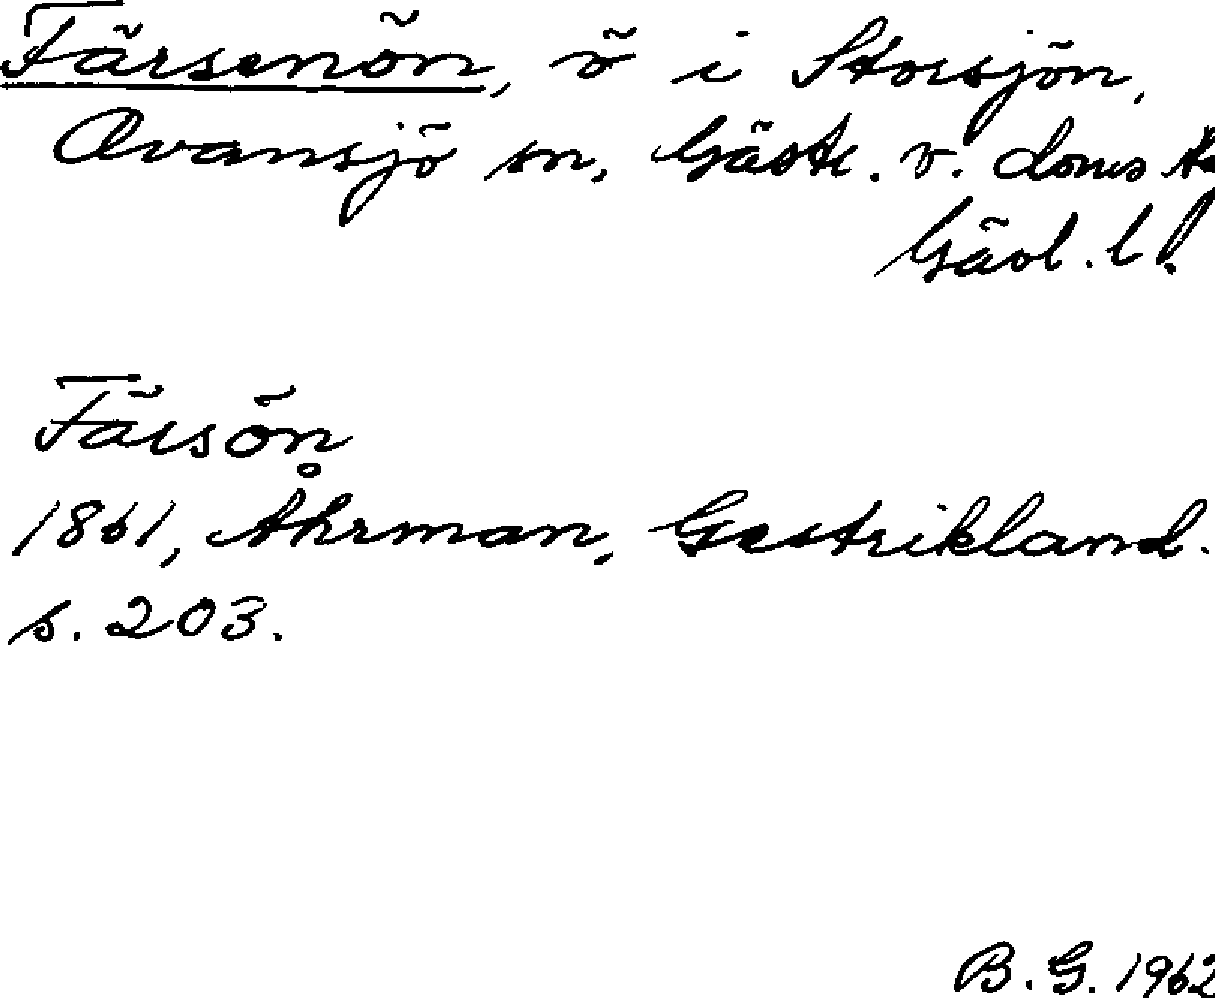 Färsenön, ö i Storsjön,
Ovansjö sn, Gästr. v. doms
Gävl. l.
Färsön
1861, Åhrman, Gestrikland.
s. 203.
B. G. 1962